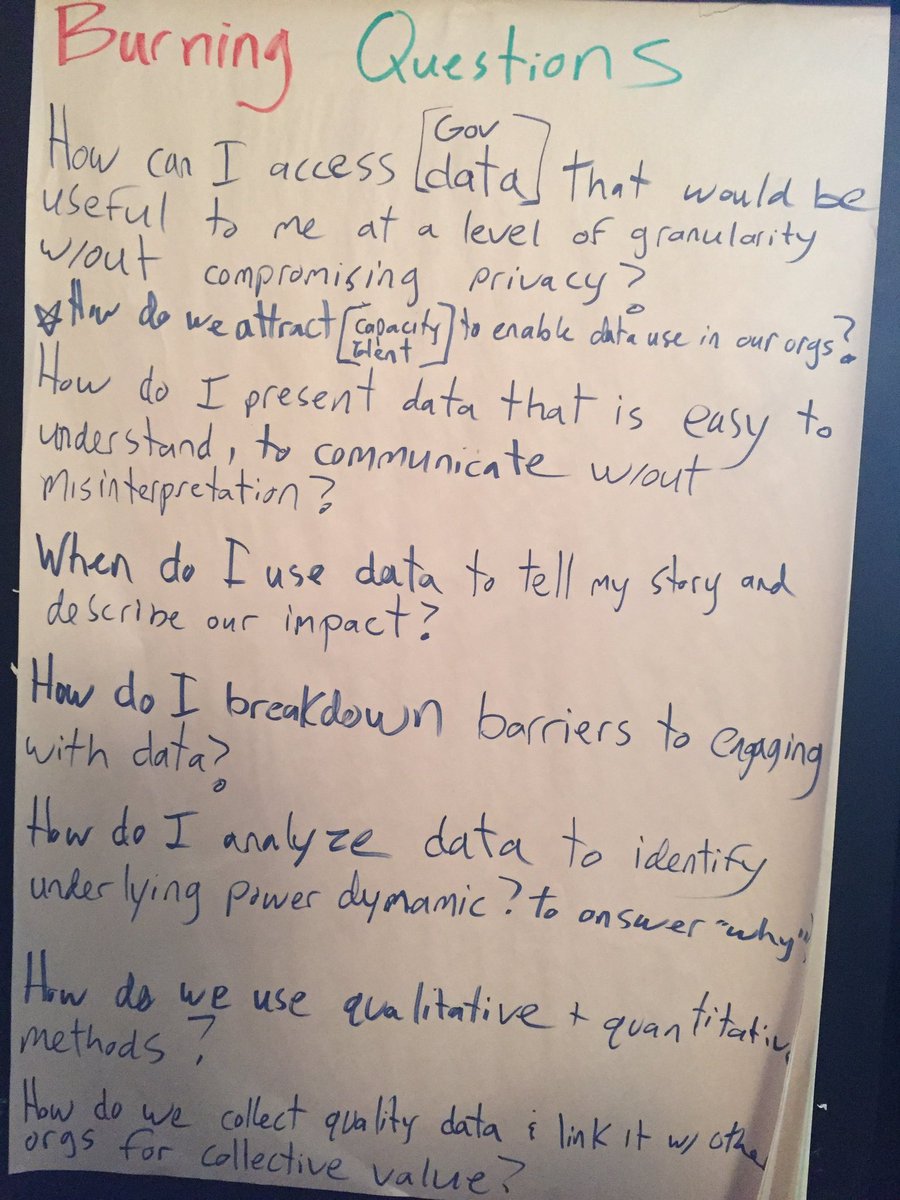 Burning Questions
How can I access [Gov data] that would be
useful to me at a level of granularity
w/out compromising privacy?
☆ How do we attract [capacity talent] to enable data use in our orgs?
How do I present data that is easy to
understand, to communicate w/out
misinterpretation?
When do I use data to tell my story and
describe our impact?
How do I breakdown barriers to engaging
with data?
How do I analyze data to identify
underlying power dymamic? to answer "why"?
How do we use qualitative + quantitativ
methods?
How do we collect quality data & link it w/ othe
orgs for collective value?